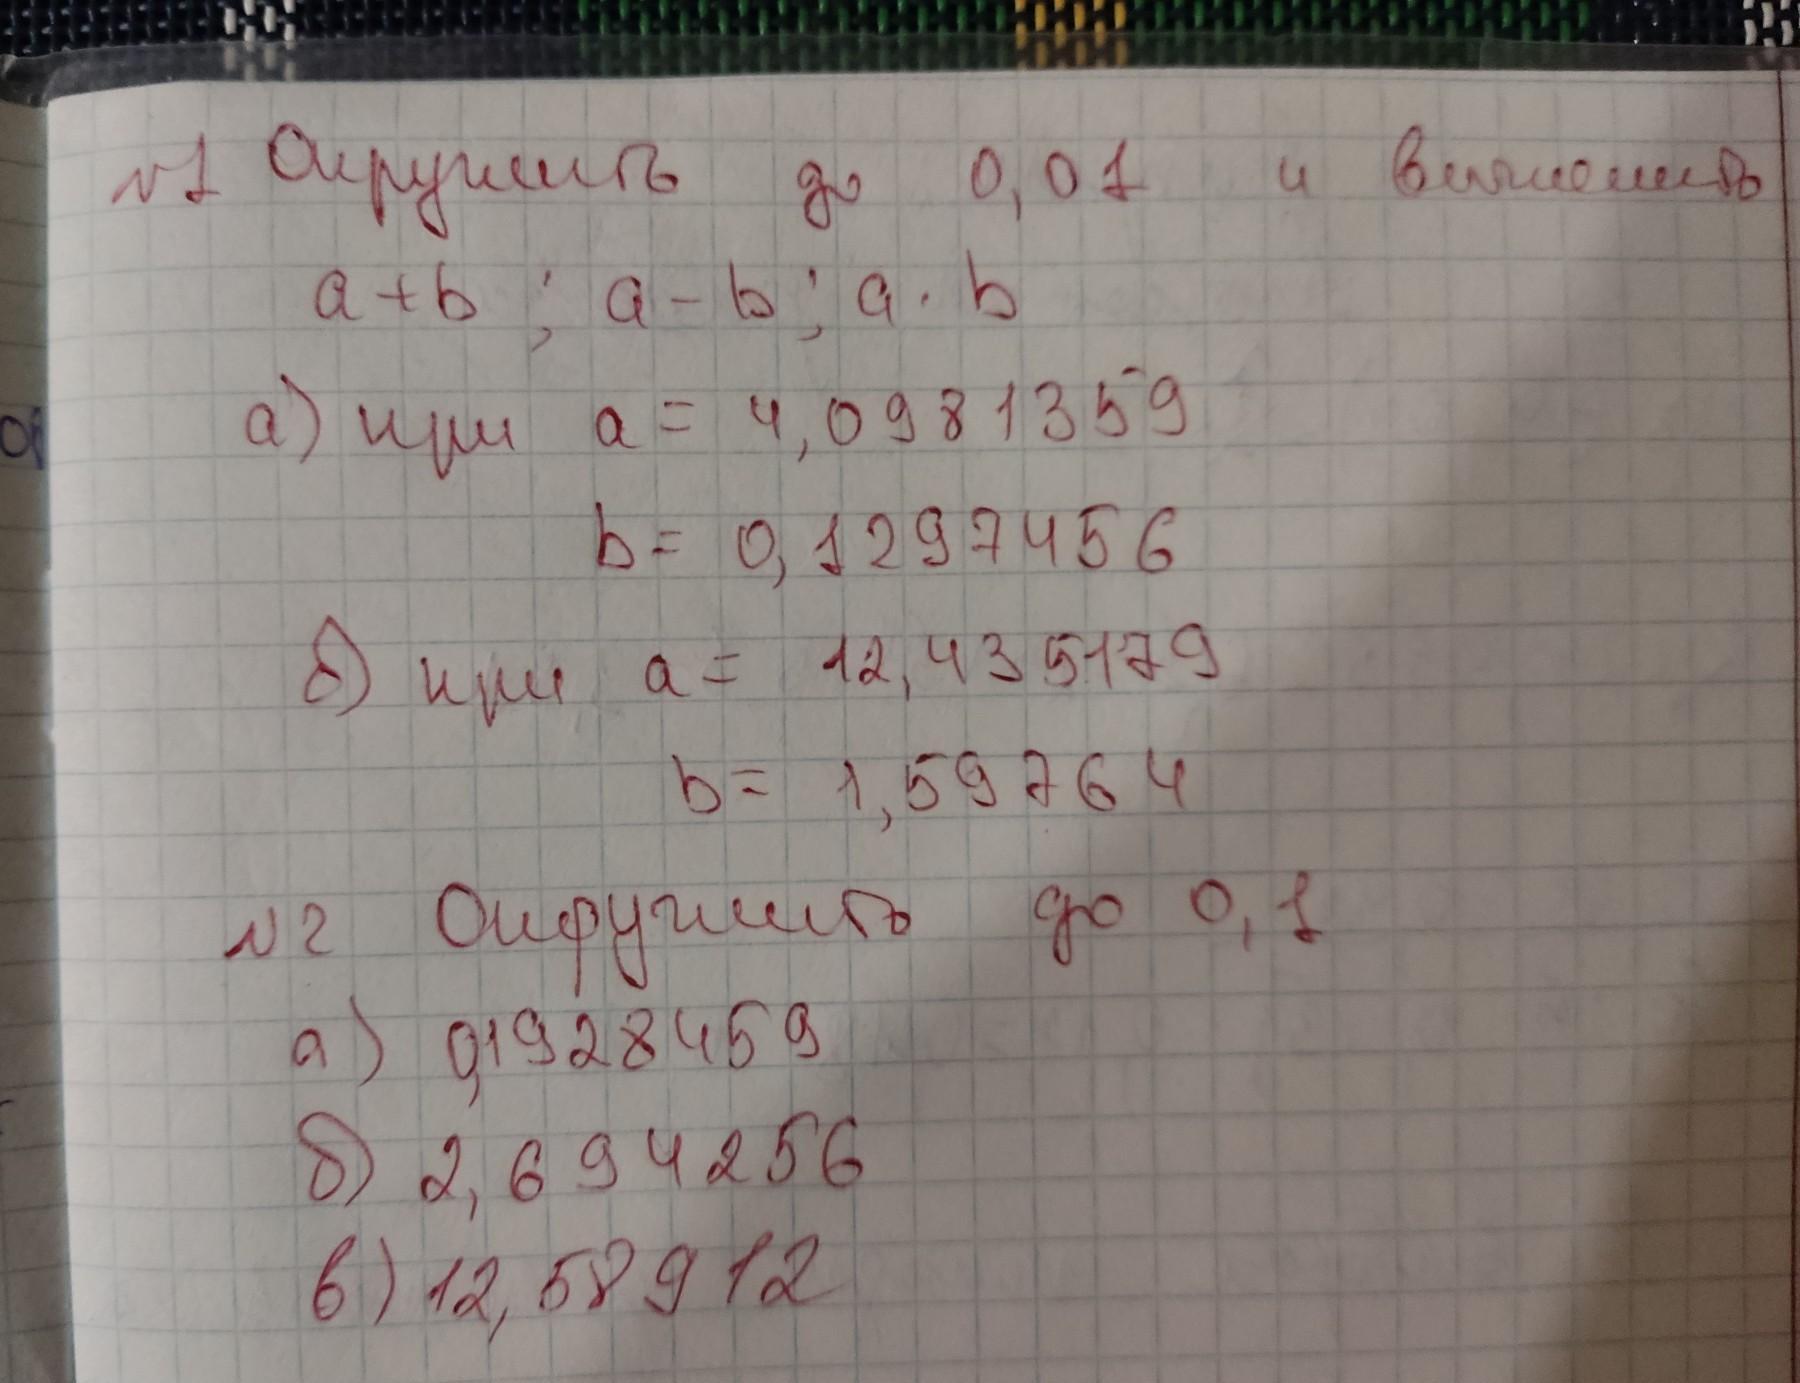 №1 Округлить до 0,01 и вычислить
a+b ; a-b ; a·b
а) при a = 4,0981359
b = 0,1297456
б) при a = 12,435179
b = 1,59764
№2 Округлить до 0,1
а) 0,1928459
б) 2,694256
в) 12,58912